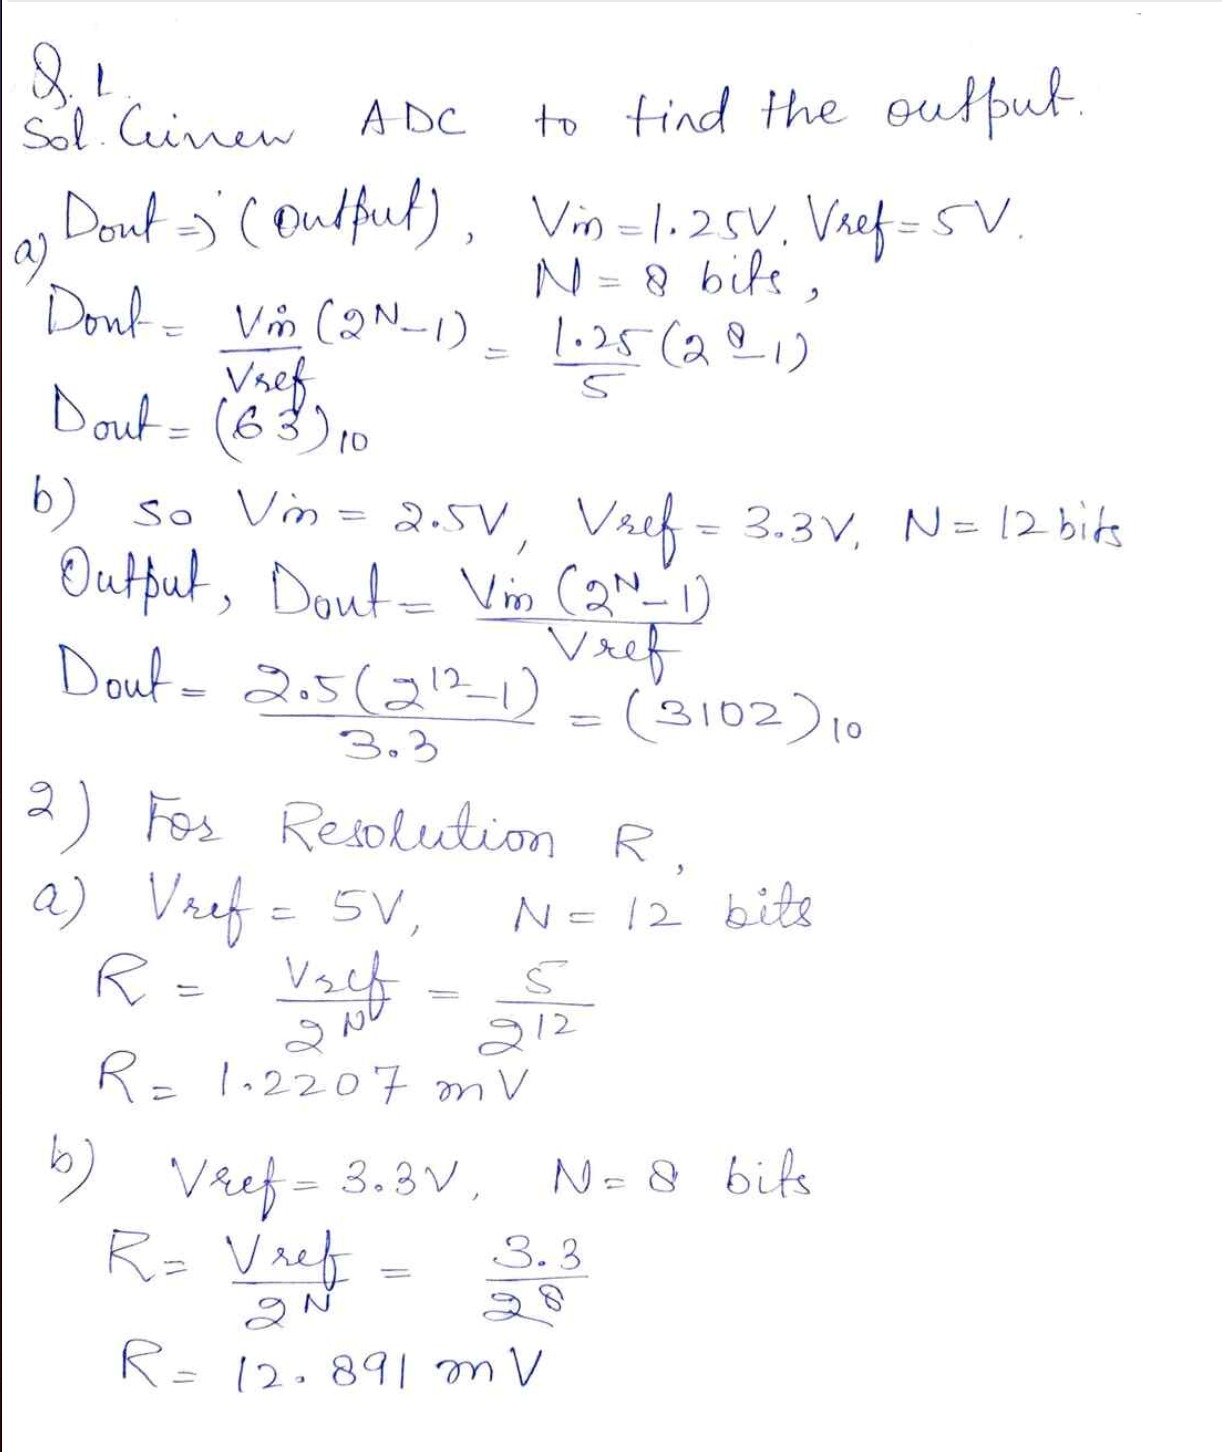 Q.1.
Sol. Given ADC to find the output.
a) Dout => (output), Vin = 1.25V, Vref = 5V.
N = 8 bits,
Dout = Vin/Vref (2^N-1) = 1.25/5 (2^8-1)
Dout = (63)10
b) so Vin = 2.5V, Vref = 3.3V, N = 12 bits
Output, Dout = Vin (2^N-1)/Vref
Dout = 2.5(2^12-1)/3.3 = (3102)10
2) For Resolution R,
a) Vref = 5V, N = 12 bits
R = Vref/2^N = 5/2^12
R = 1.2207 mV
b) Vref = 3.3V, N = 8 bits
R = Vref/2^N = 3.3/2^8
R = 12.891 mV